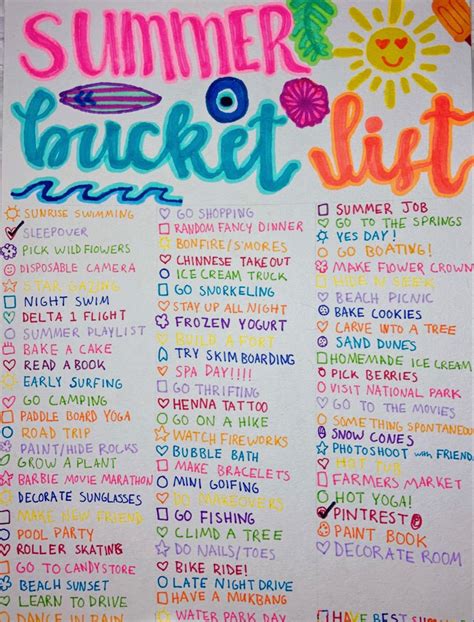 SUMMER
bucket list
SUNRISE SWIMMING
SLEEPOVER
PICK WILDFLOWERS
DISPOSABLE CAMERA
STAR GAZING
NIGHT SWIM
DELTA 1 FLIGHT
SUMMER PLAYLIST
BAKE A CAKE
READ A BOOK
EARLY SURFING
GO CAMPING
PADDLE BOARD YOGA
ROAD TRIP
PAINT/HIDE ROCKS
GROW A PLANT
BARBIE MOVIE MARATHON
DECORATE SUNGLASSES
MAKE NEW FRIEND
POOL PARTY
ROLLER SKATING
GO TO CANDYSTORE
BEACH SUNSET
LEARN TO DRIVE
DANCE IN RAIN
GO SHOPPING
RANDOM FANCY DINNER
BONFIRE/S'MORES
CHINNESE TAKE OUT
ICE CREAM TRUCK
GO SNORKELING
STAY UP ALL NIGHT
FROZEN YOGURT
BUILD A FORT
TRY SKIM BOARDING
SPA DAY!!!!
GO THRIFTING
HENNA TATTOO
GO ON A HIKE
WATCH FIREWORKS
BUBBLE BATH
MAKE BRACELETS
MINI GOLFING
DO MAKEOVERS
GO FISHING
CLIMB A TREE
DO NAILS/TOES
BIKE RIDE!
LATE NIGHT DRIVE
HAVE A MUKBANG
WATER PARK DAY
SUMMER JOB
GO TO THE SPRINGS
YES DAY!
GO BOATING!
MAKE FLOWER CROWN
HIDE N SEEK
BEACH PICNIC
BAKE COOKIES
CARVE INTO A TREE
SAND DUNES
HOMEMADE ICE CREAM
PICK BERRIES
VISIT NATIONAL PARK
GO TO THE MOVIES
SOMETHING SPONTANEOUS
SNOW CONES
PHOTOSHOOT with FRIENDS
HOT TUB
FARMERS MARKET
HOT YOGA!
PINTREST
PAINT BOOK
DECORATE ROOM
HAVE BEST